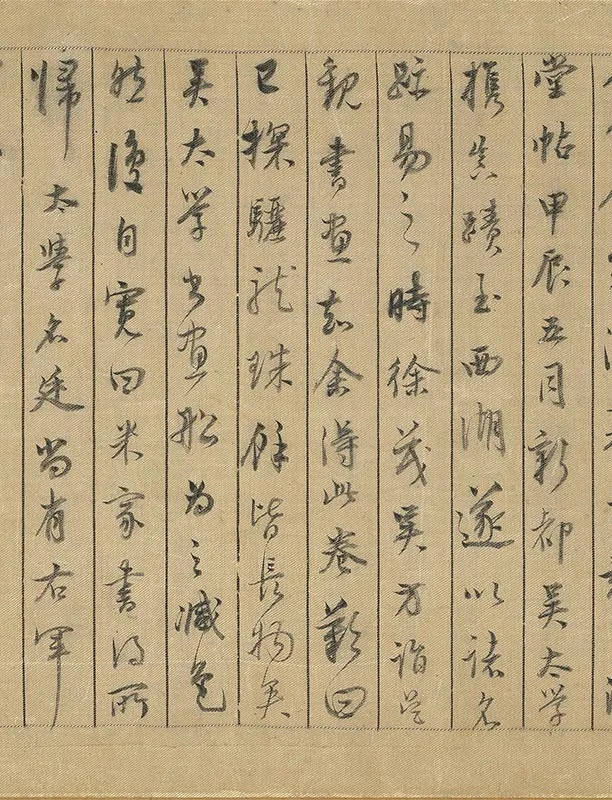 堂帖甲辰五月新都吳太学
攜真蹟至西湖遂以諸名
跡易之時徐茂吳方詣吳
觀書畫知余得此卷歎曰
已探驪龍珠餘皆長物矣
吳太学書畫船為之減色
然復自寬曰米家書得所
歸太學名廷尚有右軍